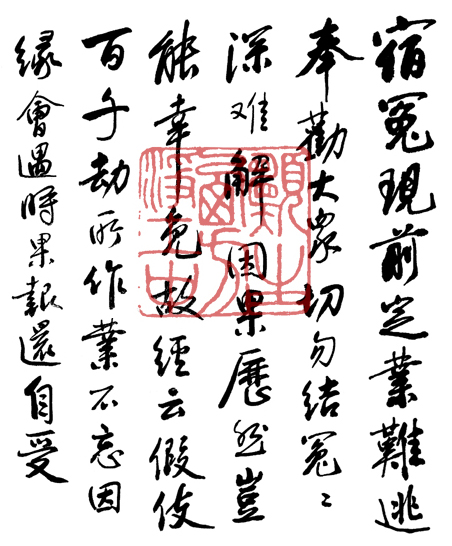 宿冤現前定業難逃
奉勸大眾切勿結冤〻
深难解因果歷然豈
能幸免故經云假使
百千劫所作業不忘因
緣會遇時果報還自受
願生
西方
淨土中